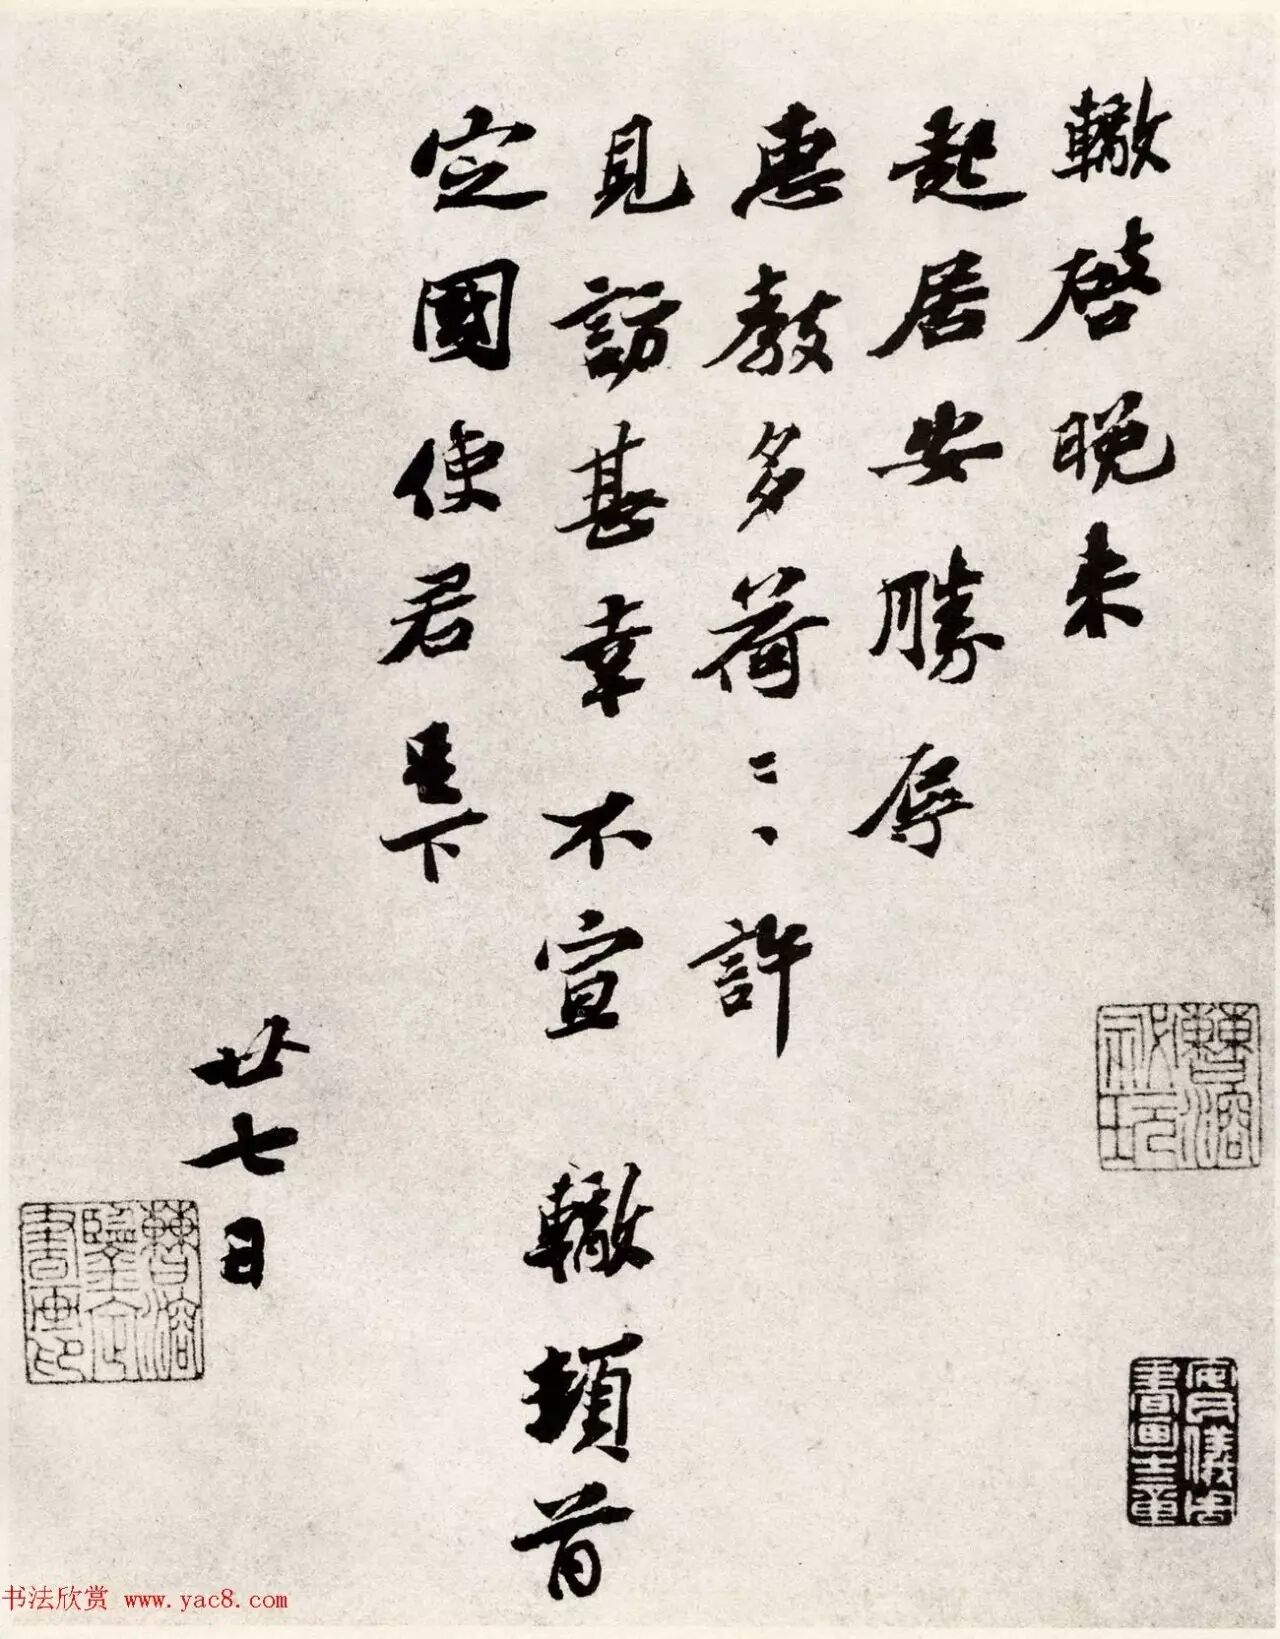 轍啓晚來
起居安勝辱
惠教多荷〻〻許
見訪甚幸不宣 轍頓首
定國使君足下
廿七日
書法欣赏 www.yac8.com